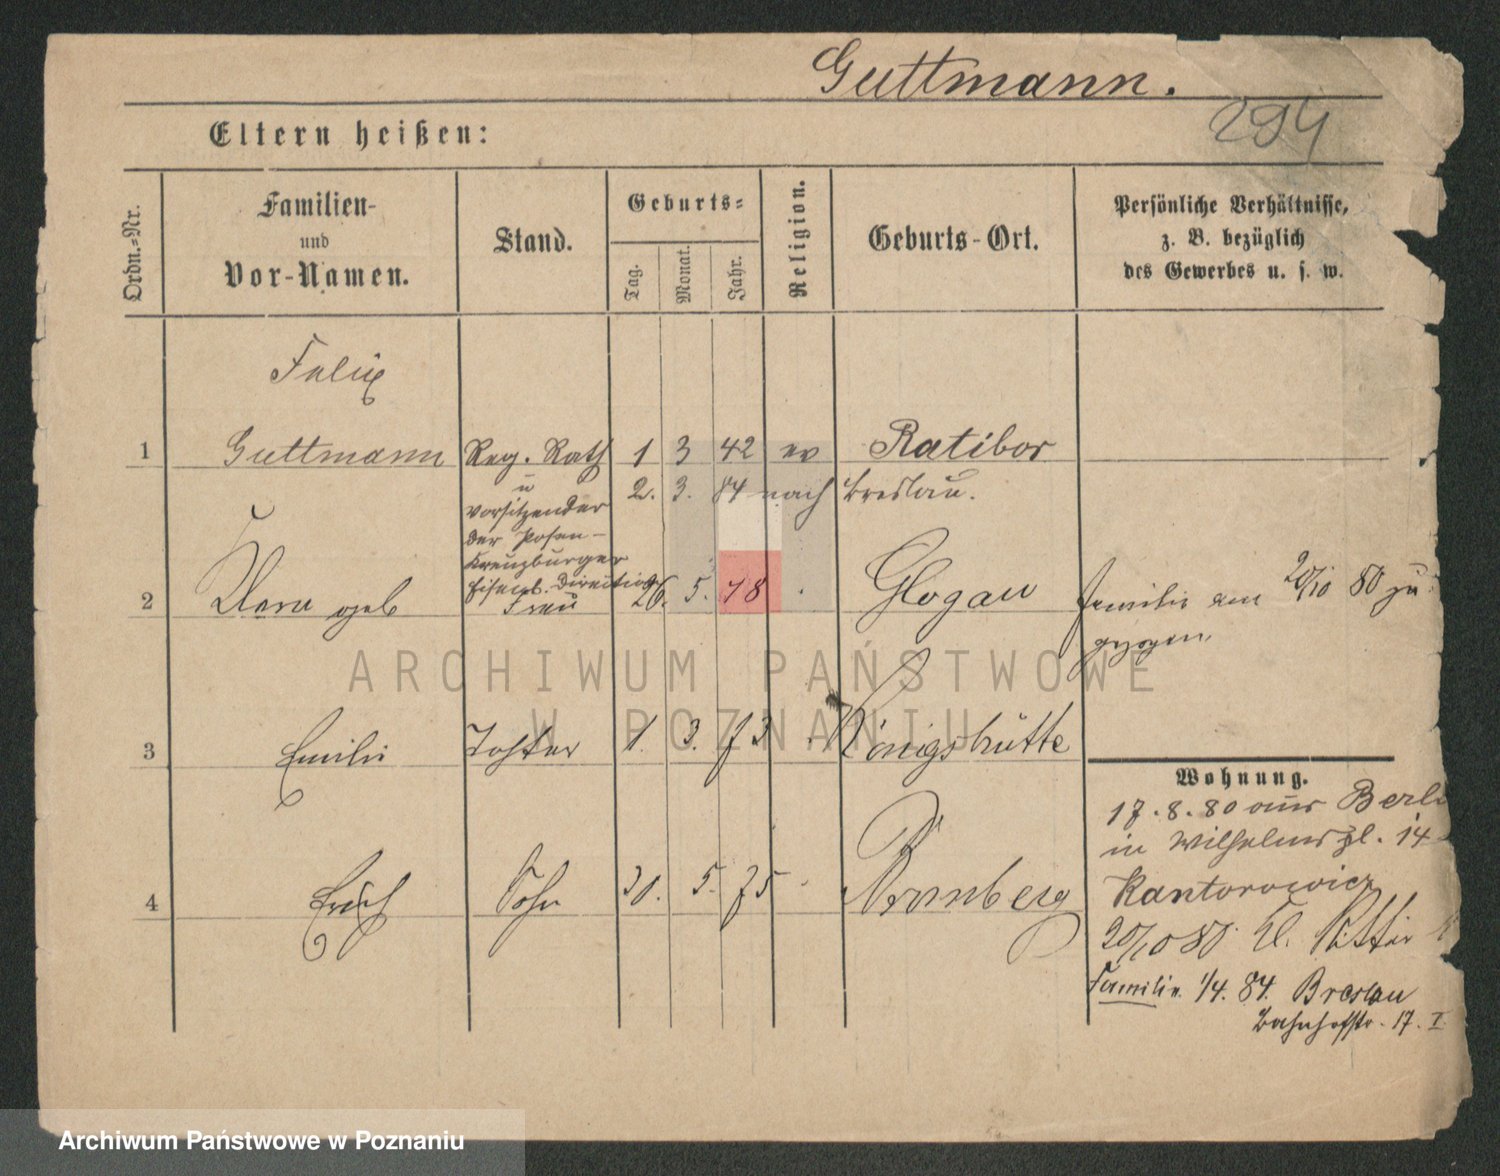 Guttmann.
294
Eltern heißen:
Ordn.-Nr.
Familien-
und
Vor-Namen.
Stand.
Geburts-
Tag.
Monat.
Jahr.
Religion.
Geburts-Ort.
Persönliche Verhältnisse,
z. B. bezüglich
des Gewerbes u. s. w.
Felix
1 Guttmann Reg. Rath 1 3 42 ev Ratibor
u 2. 3. 84 nach Breslau.
Vorsitzender
der Posen-
Kreuzburger
Eisenb. Direction
2 Clara geb Frau 26. 5. 48 Glogau Familie am 20/10 80 zu
gezogen.
ARCHIWUM PAŃSTWOWE
W POZNANIU
3 Emilie Tochter 1. 3. 73 Königshütte
Wohnung.
17.8.80 aus Berlin
in Wilhelmspl. 14
Kantorowicz
4 Erich Sohn 30. 5. 75 Bromberg
20/10 80 Kl. Ritter
Familie 1/4. 84. Breslau
Bahnhofstr. 17. I
Archiwum Państwowe w Poznaniu